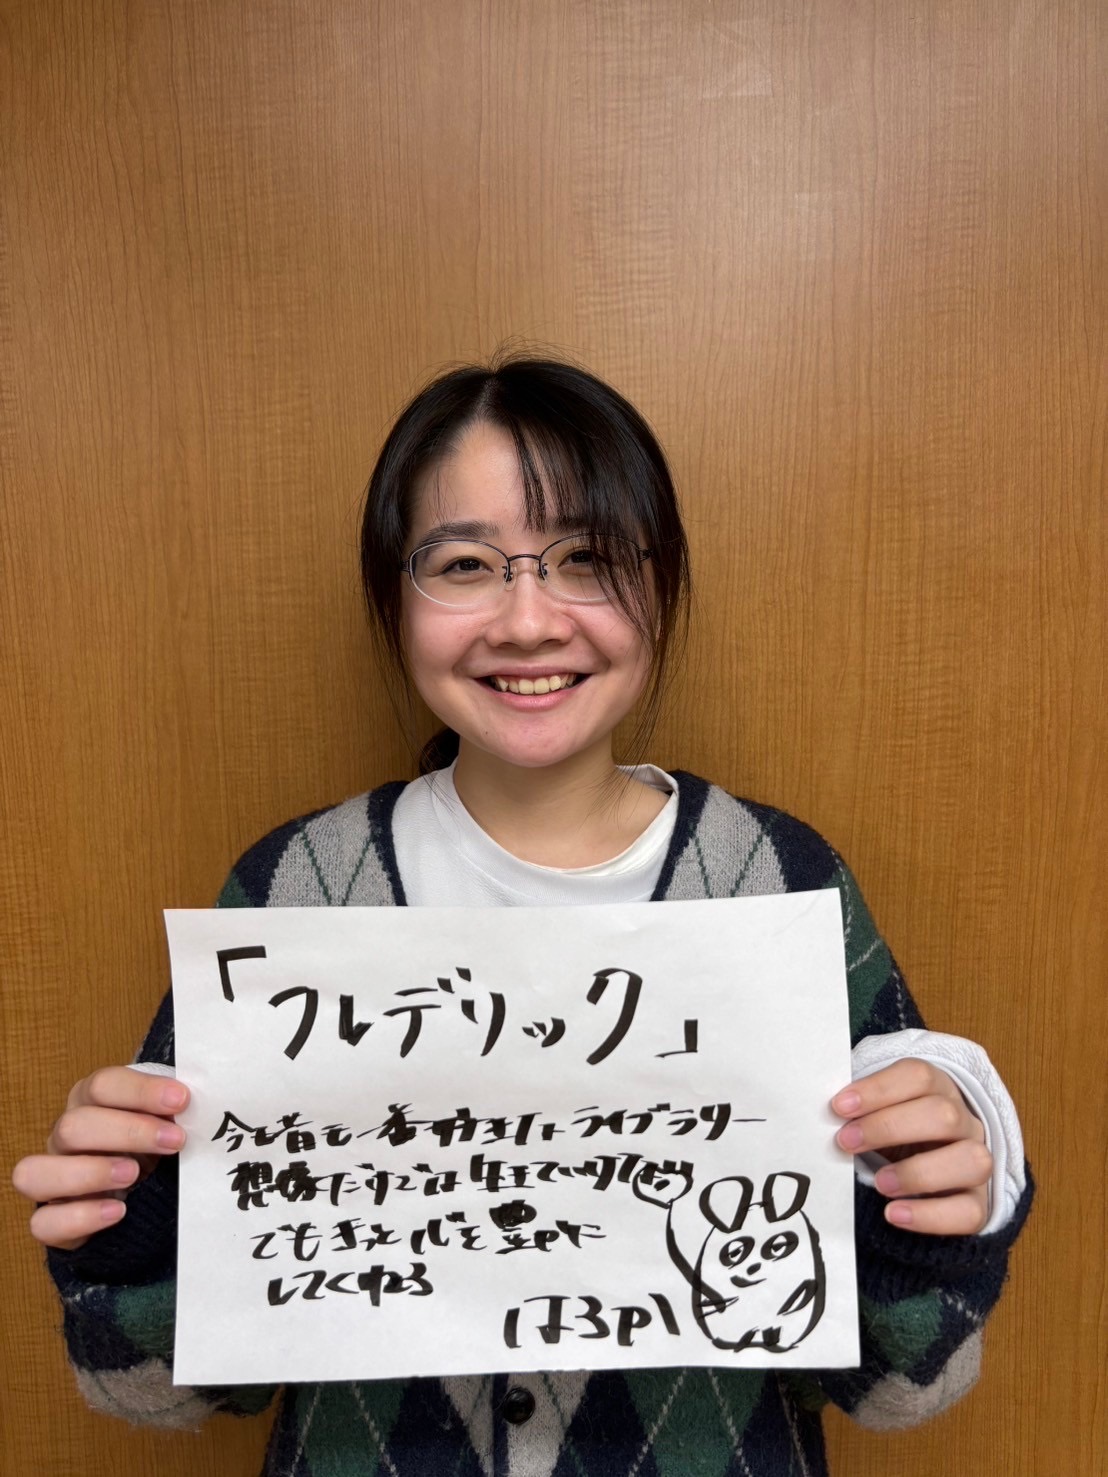 「フレデリック」
今も昔も一番好きなライブラリー
想像だけでは生きていけない
でもきっと心を豊かに
してくれる
はるか